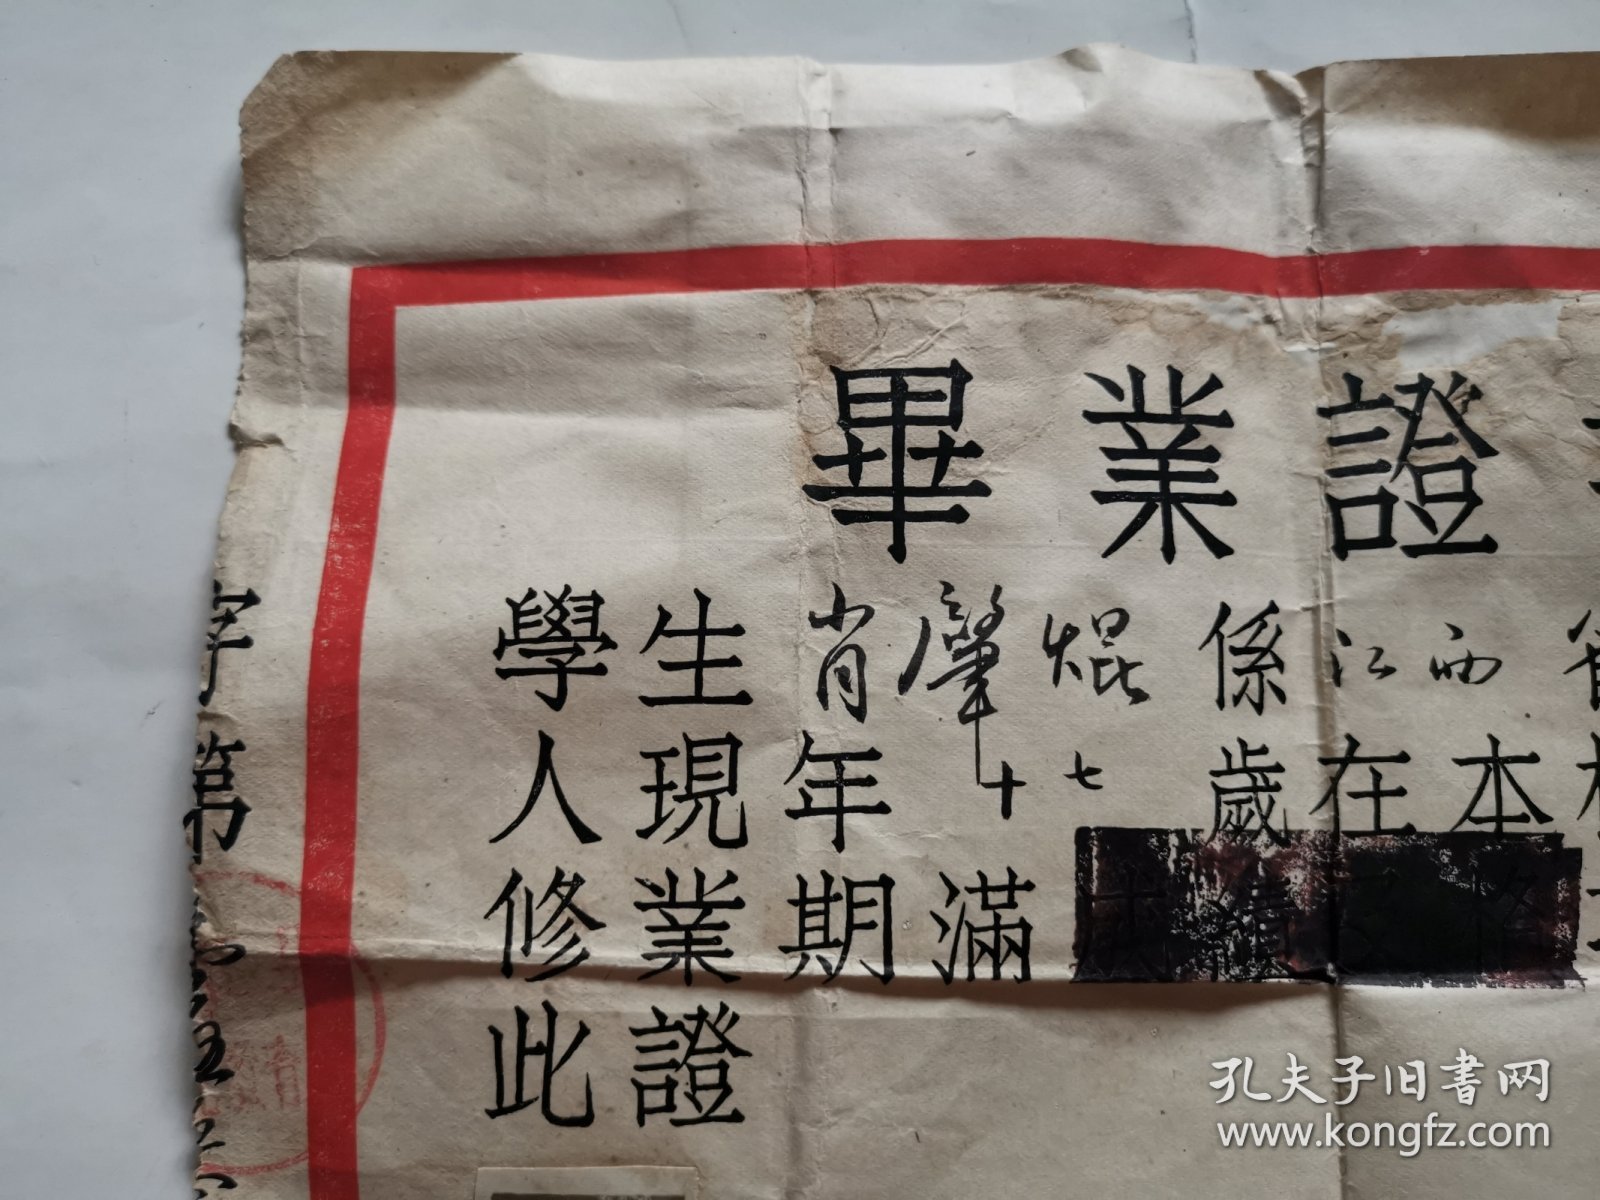 畢業證
學生肖肇焜係江西省
人現年十七歲在本校
修業期滿成績及格
此證
字第
孔夫子旧書网
www.kongfz.com